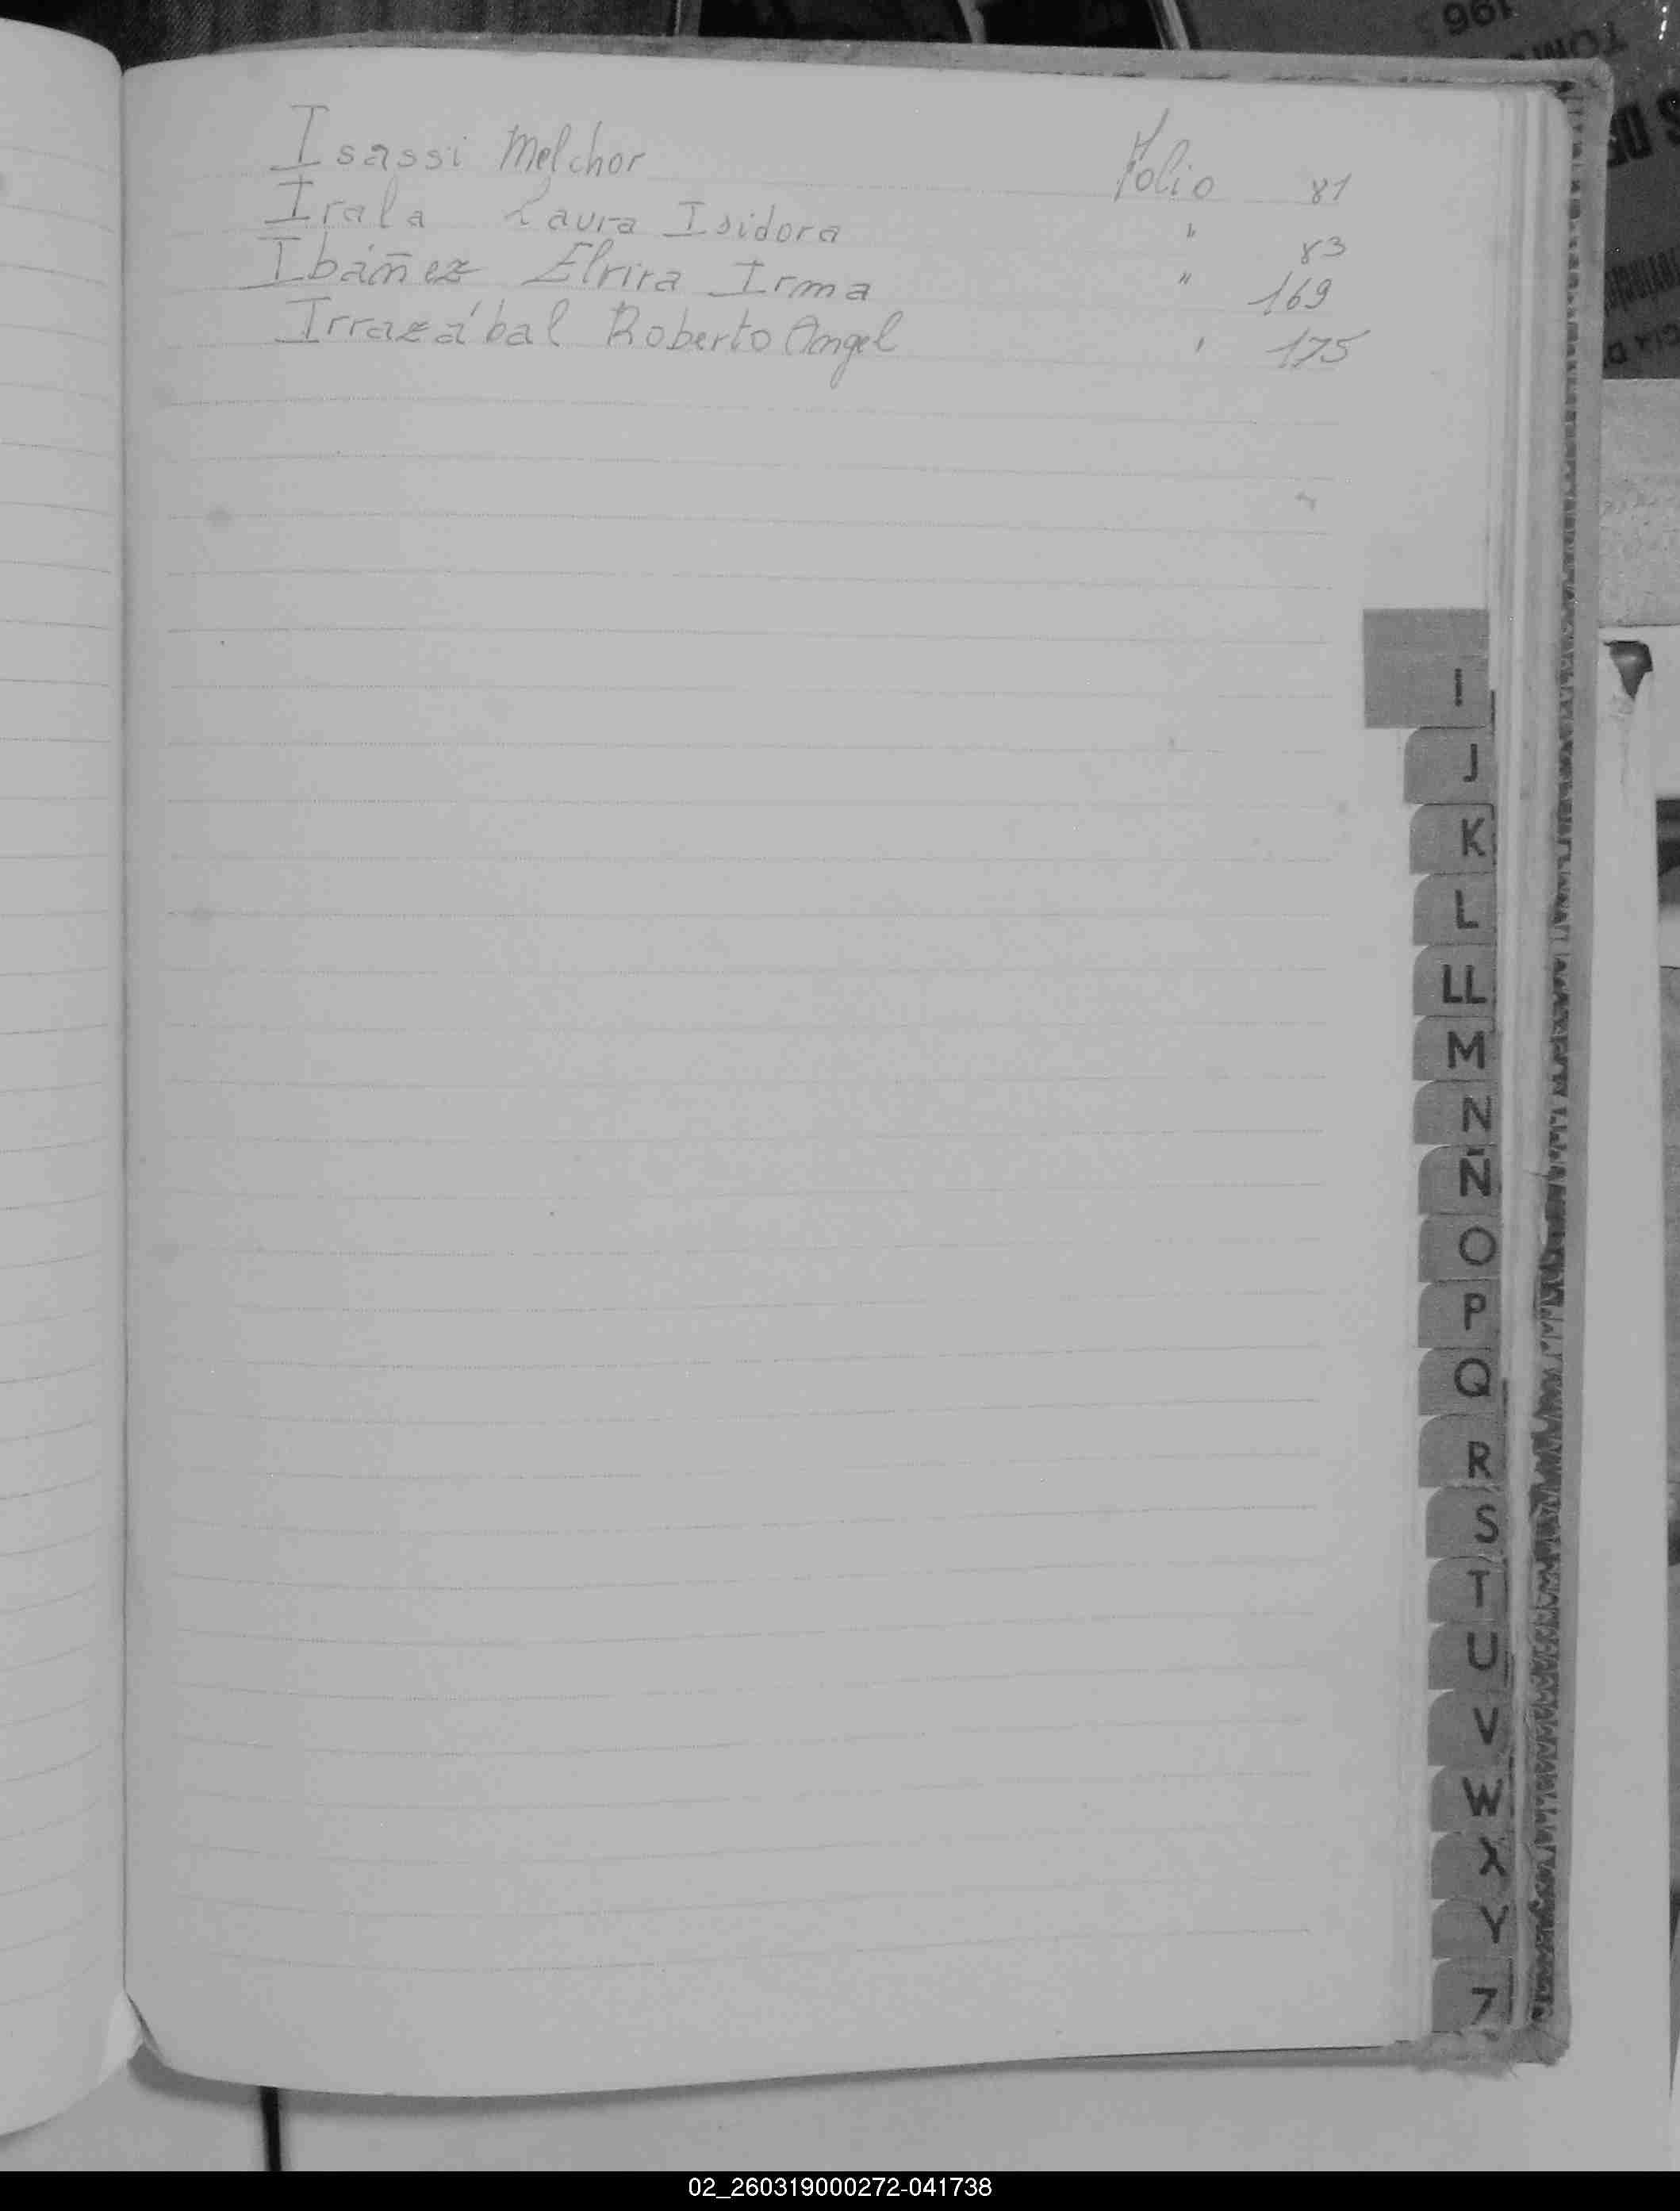 Isassi Melchor Folio 81
Irala Laura Isidora " 83
Ibáñez Elvira Irma " 169
Irrazábal Roberto Angel " 175
I
J
K
L
LL
M
N
Ñ
O
P
Q
R
S
T
U
V
W
X
Y
Z
196
TOMO
02_260319000272-041738